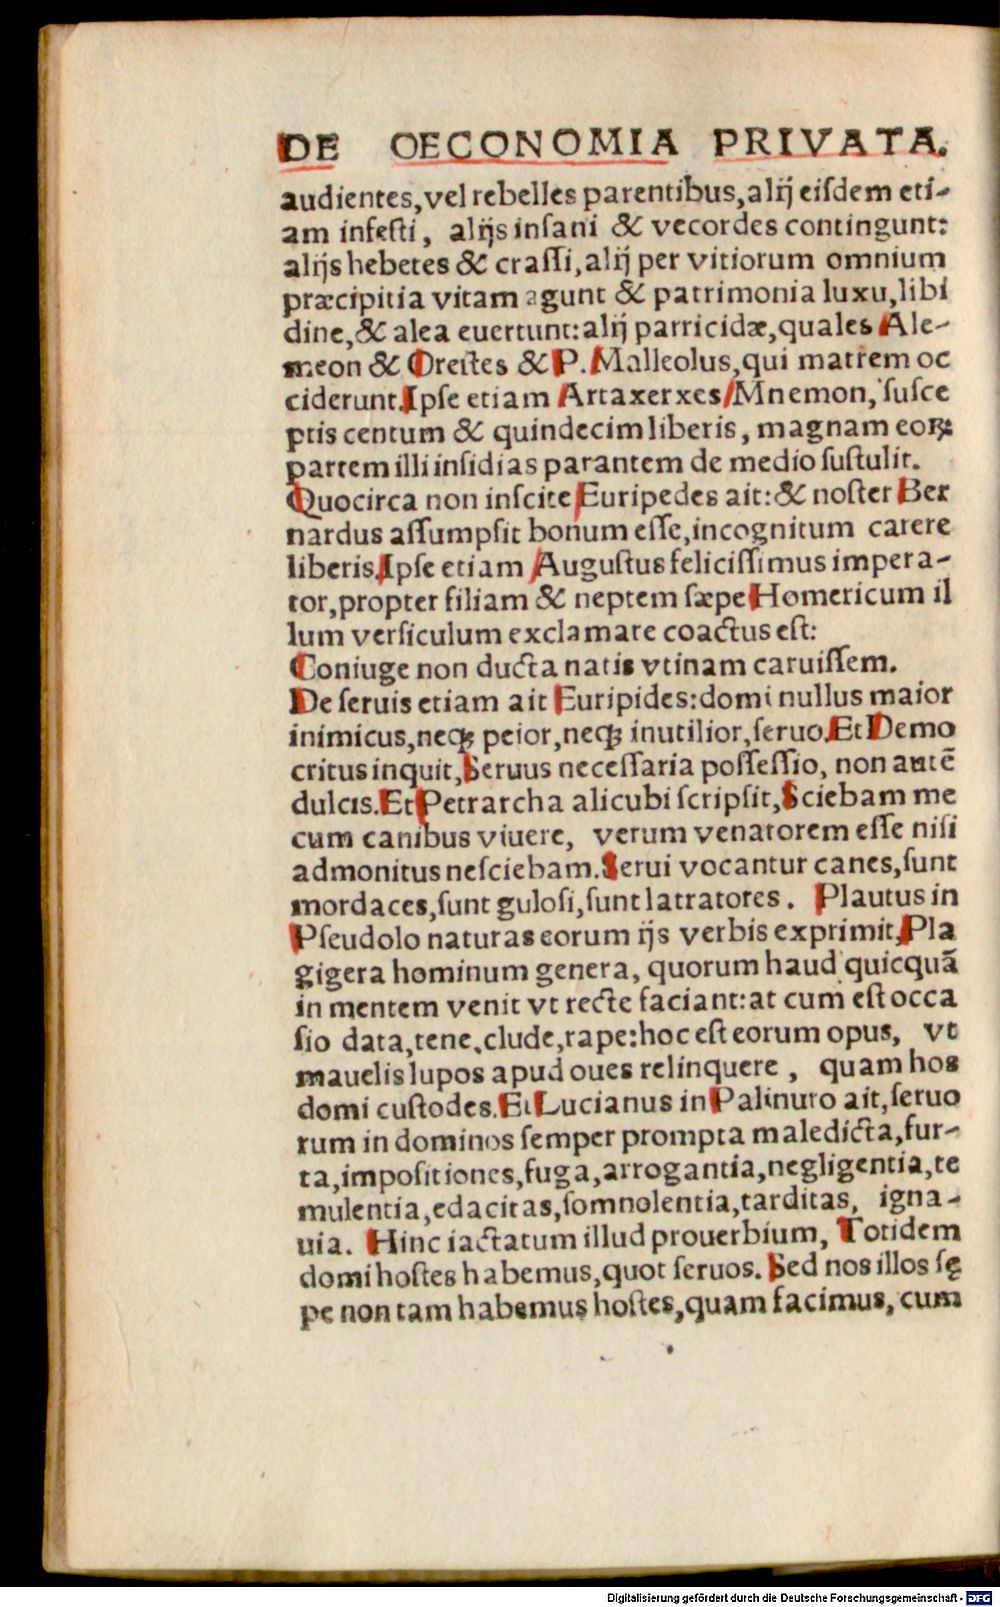 DE OECONOMIA PRIVATA.
audientes,vel rebelles parentibus,alij eiſdem eti-
am infeſti, alijs inſani & vecordes contingunt:
alijs hebetes & craſſi,alij per vitiorum omnium
præcipitia vitam agunt & patrimonia luxu,libi
dine,& alea euertunt:alij parricidæ,quales Ale-
meon & Oreſtes & P. Malleolus,qui matrem oc
ciderunt.Ipſe etiam Artaxerxes/Mnemon, ſuſce
ptis centum & quindecim liberis, magnam eoꝝ
partem illi inſidias parantem de medio ſuſtulit.
Quocirca non inſcite Euripedes ait:& noſter Ber
nardus aſſumpſit bonum eſſe,incognitum carere
liberis.Ipſe etiam Auguſtus feliciſſimus impera-
tor,propter filiam & neptem ſæpe Homericum il
lum verſiculum exclamare coactus eſt:
Coniuge non ducta natis vtinam caruiſſem.
De ſeruis etiam ait Euripides:domi nullus maior
inimicus,neqꝫ peior,neqꝫ inutilior,ſeruo.Et Demo
critus inquit,Seruus neceſſaria poſſeſſio, non autē
dulcis.Et Petrarcha alicubi ſcripſit,Sciebam me
cum canibus viuere, verum venatorem eſſe niſi
admonitus neſciebam.Serui vocantur canes,ſunt
mordaces,ſunt guloſi,ſunt latratores. Plautus in
Pſeudolo naturas eorum ijs verbis exprimit,Pla
gigera hominum genera, quorum haud quicquā
in mentem venit vt recte faciant:at cum eſt occa
ſio data,tene,clude,rape:hoc eſt eorum opus, vt
mauelis lupos apud oues relinquere, quam hos
domi cuſtodes.Et Lucianus in Palinuro ait,ſeruo
rum in dominos ſemper prompta maledicta,fur-
ta,impoſitiones,fuga,arrogantia,negligentia,te
mulentia,edacitas,ſomnolentia,tarditas, igna-
uia. Hinc iactatum illud prouerbium, Totidem
domi hoſtes habemus,quot ſeruos. Sed nos illos ſę
pe non tam habemus hoſtes,quam facimus, cum
Digitalisierung gefördert durch die Deutsche Forschungsgemeinschaft - DFG